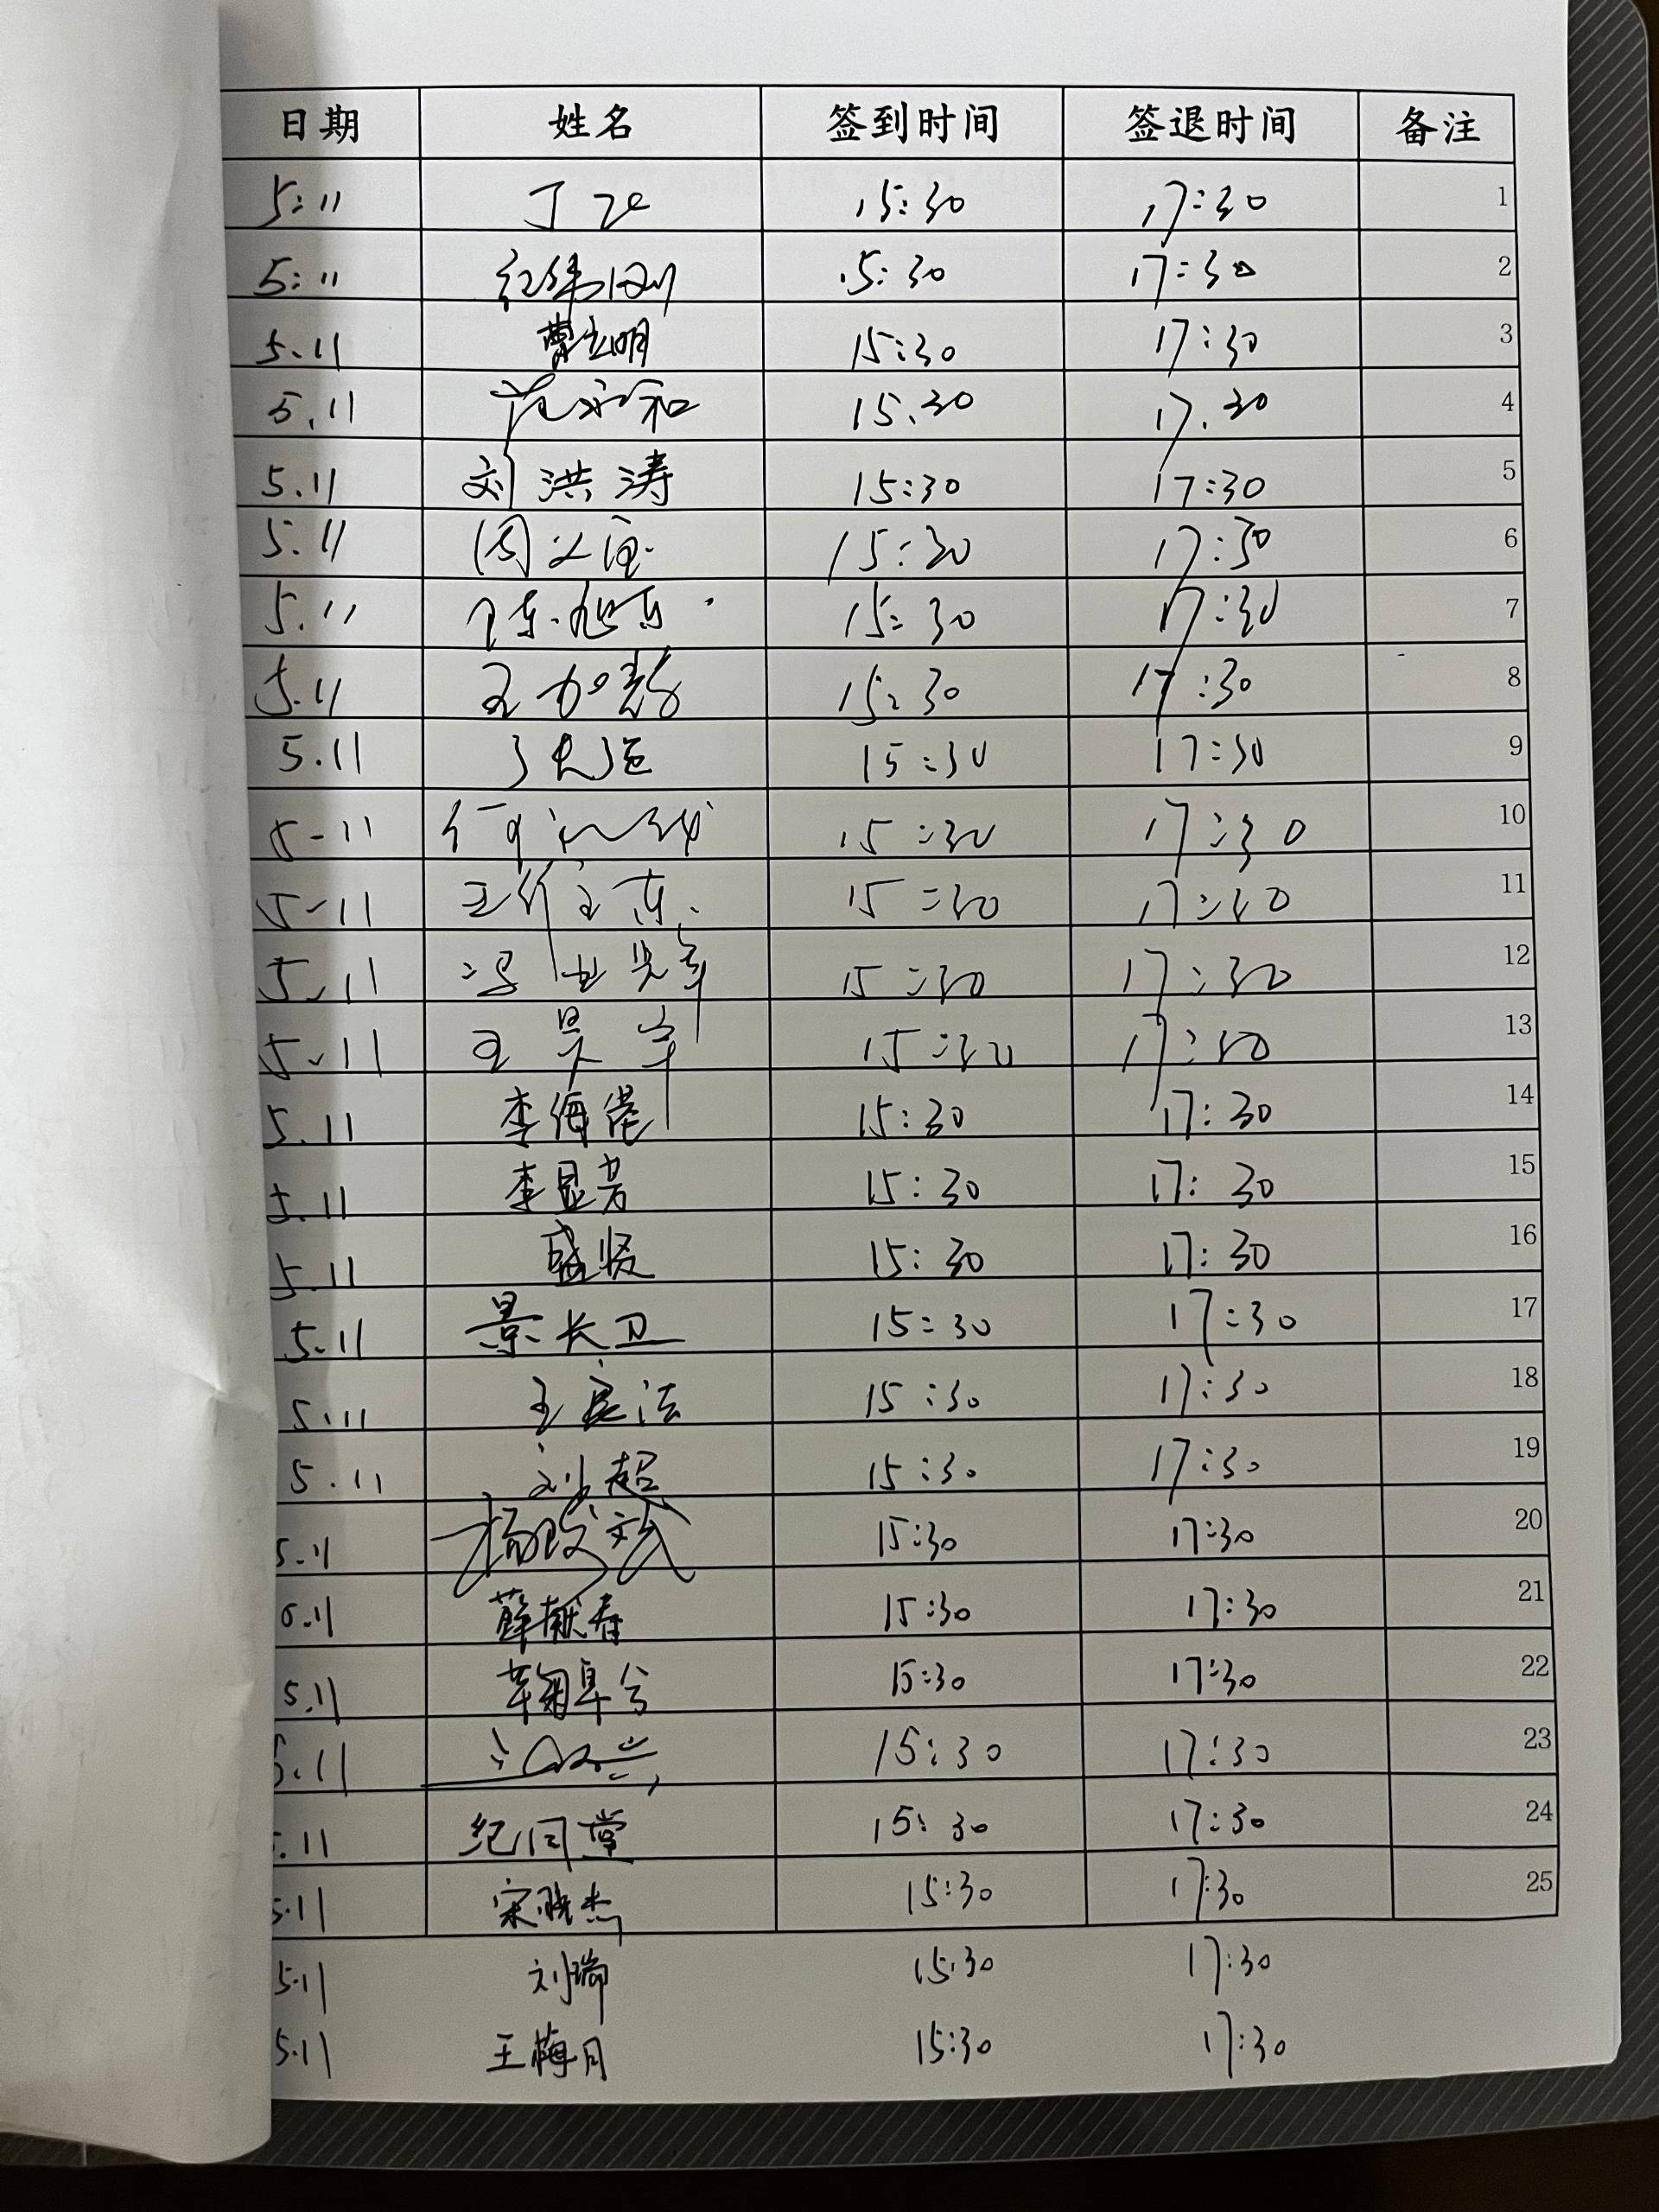 日期 姓名 签到时间 签退时间 备注
5:11 丁 15:30 17:30 1
5:11 15:30 17:30 2
5.11 曹立明 15:30 17:30 3
5.11 范永和 15.30 17.30 4
5.11 刘洪涛 15:30 17:30 5
5.11 周 15:30 17:30 6
5.11 陈旭东 15:30 17:30 7
5.11 王加彩 15:30 17:30 8
5.11 15:30 17:30 9
5-11 何 15:30 17:30 10
5-11 王 东 15:30 17:30 11
5-11 冯 15:30 17:30 12
5-11 王昊宇 15:30 17:30 13
5.11 李海 15:30 17:30 14
5.11 李显芳 15:30 17:30 15
5.11 盛贤 15:30 17:30 16
5.11 景长卫 15:30 17:30 17
5.11 王宪法 15:30 17:30 18
5.11 刘超 15:30 17:30 19
5.11 杨 15:30 17:30 20
5.11 薛献春 15:30 17:30 21
5.11 15:30 17:30 22
5.11 15:30 17:30 23
5.11 纪同堂 15:30 17:30 24
5.11 宋晓杰 15:30 17:30 25
5.11 刘瑞 15:30 17:30
5.11 王梅月 15:30 17:30